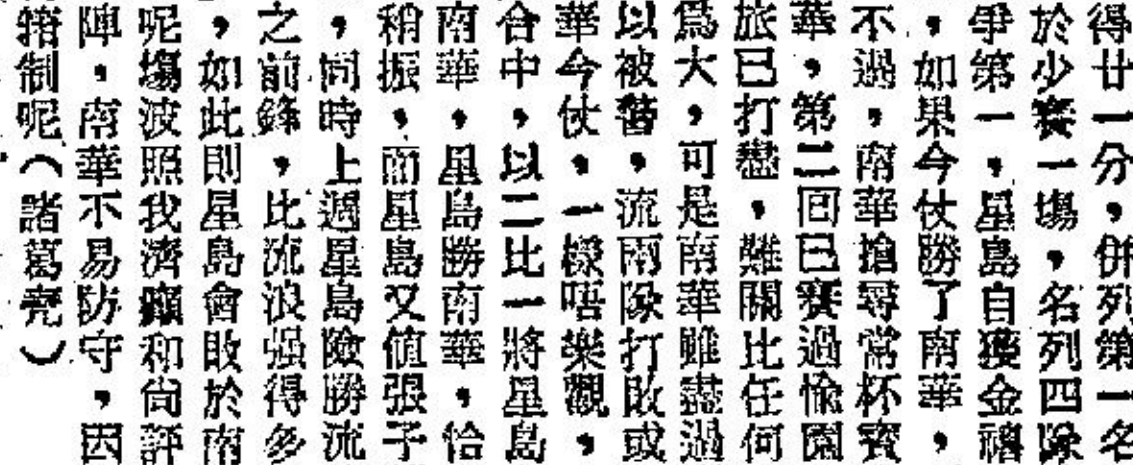 得廿一分，併列第一名
於少賽一場，名列四隊
爭第一，星島自獲金禧
，如果今仗勝了南華，
不過，南華搶尋常杯賽
華，第二回已賽過愉園
旅已打盡，難關比任何
為大，可是南華雖盡過
以被警，流兩隊打敗或
華今仗，一樣唔樂觀，
合中，以二比一將星島
南華，星島勝南華，恰
稍振，而星島又值張子
，同時上週星島險勝流
之前鋒，比流浪强得多
，如此則星島會敗於南
呢塲波照我濟癲和尙評
陣，南華不易防守，因
制呢（諸葛亮）